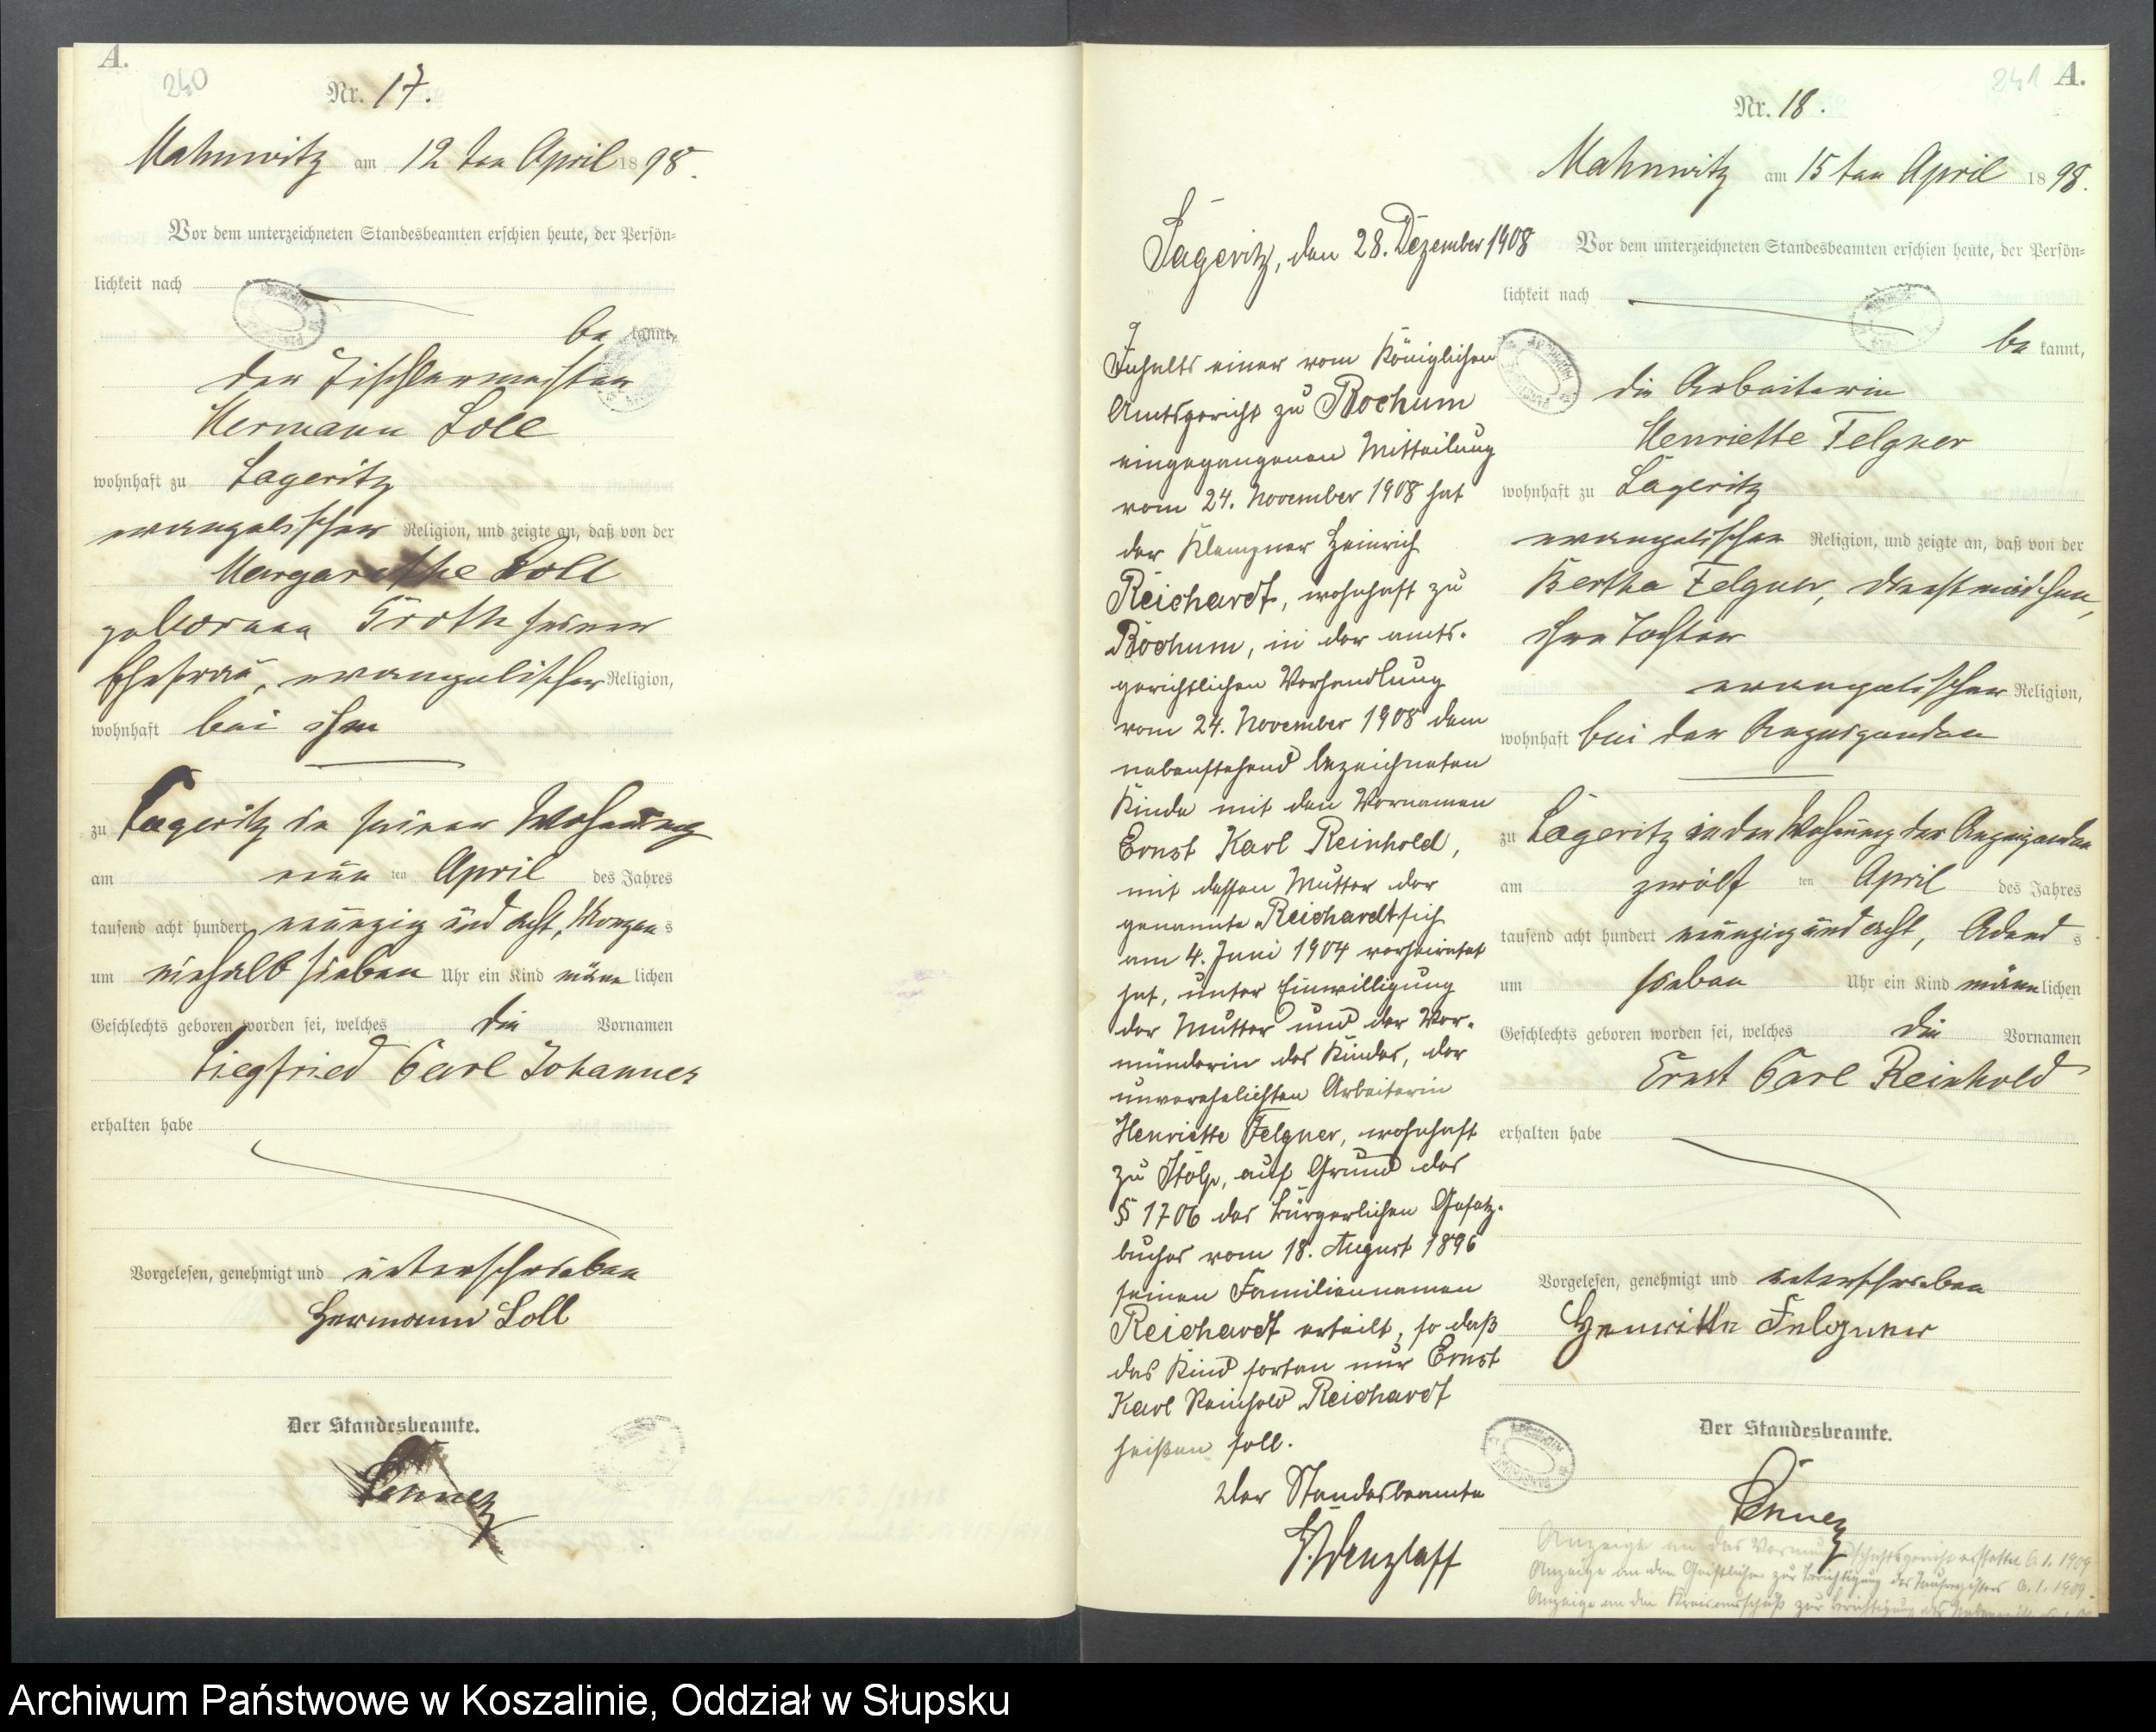 A.
240
Nr. 17.
Mahnwitz am 12 ten April 1898.
Vor dem unterzeichneten Standesbeamten erschien heute, der Persön-
lichkeit nach
be kannt,
der Tischlermeister
Hermann Loll
wohnhaft zu Lageritz
evangelischer Religion, und zeigte an, daß von der
Margarethe Loll
geborenen Groth seiner
Ehefrau, evangelischer Religion,
wohnhaft bei ihm
zu Lageritz in seiner Wohnung
am neun ten April des Jahres
tausend acht hundert neunzig und acht, Morgens
um einhalb sieben Uhr ein Kind männlichen
Geschlechts geboren worden sei, welches die Vornamen
Siegfried Carl Johannes
erhalten habe
Vorgelesen, genehmigt und unterschrieben
Hermann Loll
Der Standesbeamte.
241 A.
Nr. 18.
Mahnwitz am 15 ten April 1898.
Vor dem unterzeichneten Standesbeamten erschien heute, der Persön-
lichkeit nach
be kannt,
die Arbeiterin
Henriette Felgner
wohnhaft zu Lageritz
evangelischer Religion, und zeigte an, daß von der
Bertha Felgner, Dienstmädchen,
ihre Tochter
evangelischer Religion,
wohnhaft bei der Anzeigenden
zu Lageritz in der Wohnung der Anzeigenden
am zwölf ten April des Jahres
tausend acht hundert neunzig und acht, Abends
um sieben Uhr ein Kind männlichen
Geschlechts geboren worden sei, welches die Vornamen
Ernst Carl Reinhold
erhalten habe
Vorgelesen, genehmigt und unterschrieben
Henriette Felgner
Der Standesbeamte.
Lageritz, den 28. Dezember 1908
Inhalts einer vom Königlichen
Amtsgericht zu Bochum
eingegangenen Mitteilung
vom 24. November 1908 hat
der Klempner Heinrich
Reichardt, wohnhaft zu
Bochum, in der amts-
gerichtlichen Verhandlung
vom 24. November 1908 dem
nebenstehend bezeichneten
Kinde mit den Vornamen
Ernst Karl Reinhold,
mit dessen Mutter der
genannte Reichardt sich
am 4. Juni 1904 verheiratet
hat, unter Einwilligung
der Mutter und der Vor-
münderin des Kindes, der
unverehelichten Arbeiterin
Henriette Felgner, wohnhaft
zu Stolp, auf Grund des
§ 1706 des Bürgerlichen Gesetz-
buches vom 18. August 1896
seinen Familiennamen
Reichardt erteilt, so daß
das Kind fortan nur Ernst
Karl Reinhold Reichardt
heißen soll.
Der Standesbeamte
Wenzlaff
Anzeige an das Vormundschaftsgericht erstattet 6.1.1909
Anzeige an den Geistlichen zur Berichtigung des Taufregisters 6.1.1909.
Anzeige an den Kreisausschuß zur Berichtigung des
Archiwum Państwowe w Koszalinie, Oddział w Słupsku